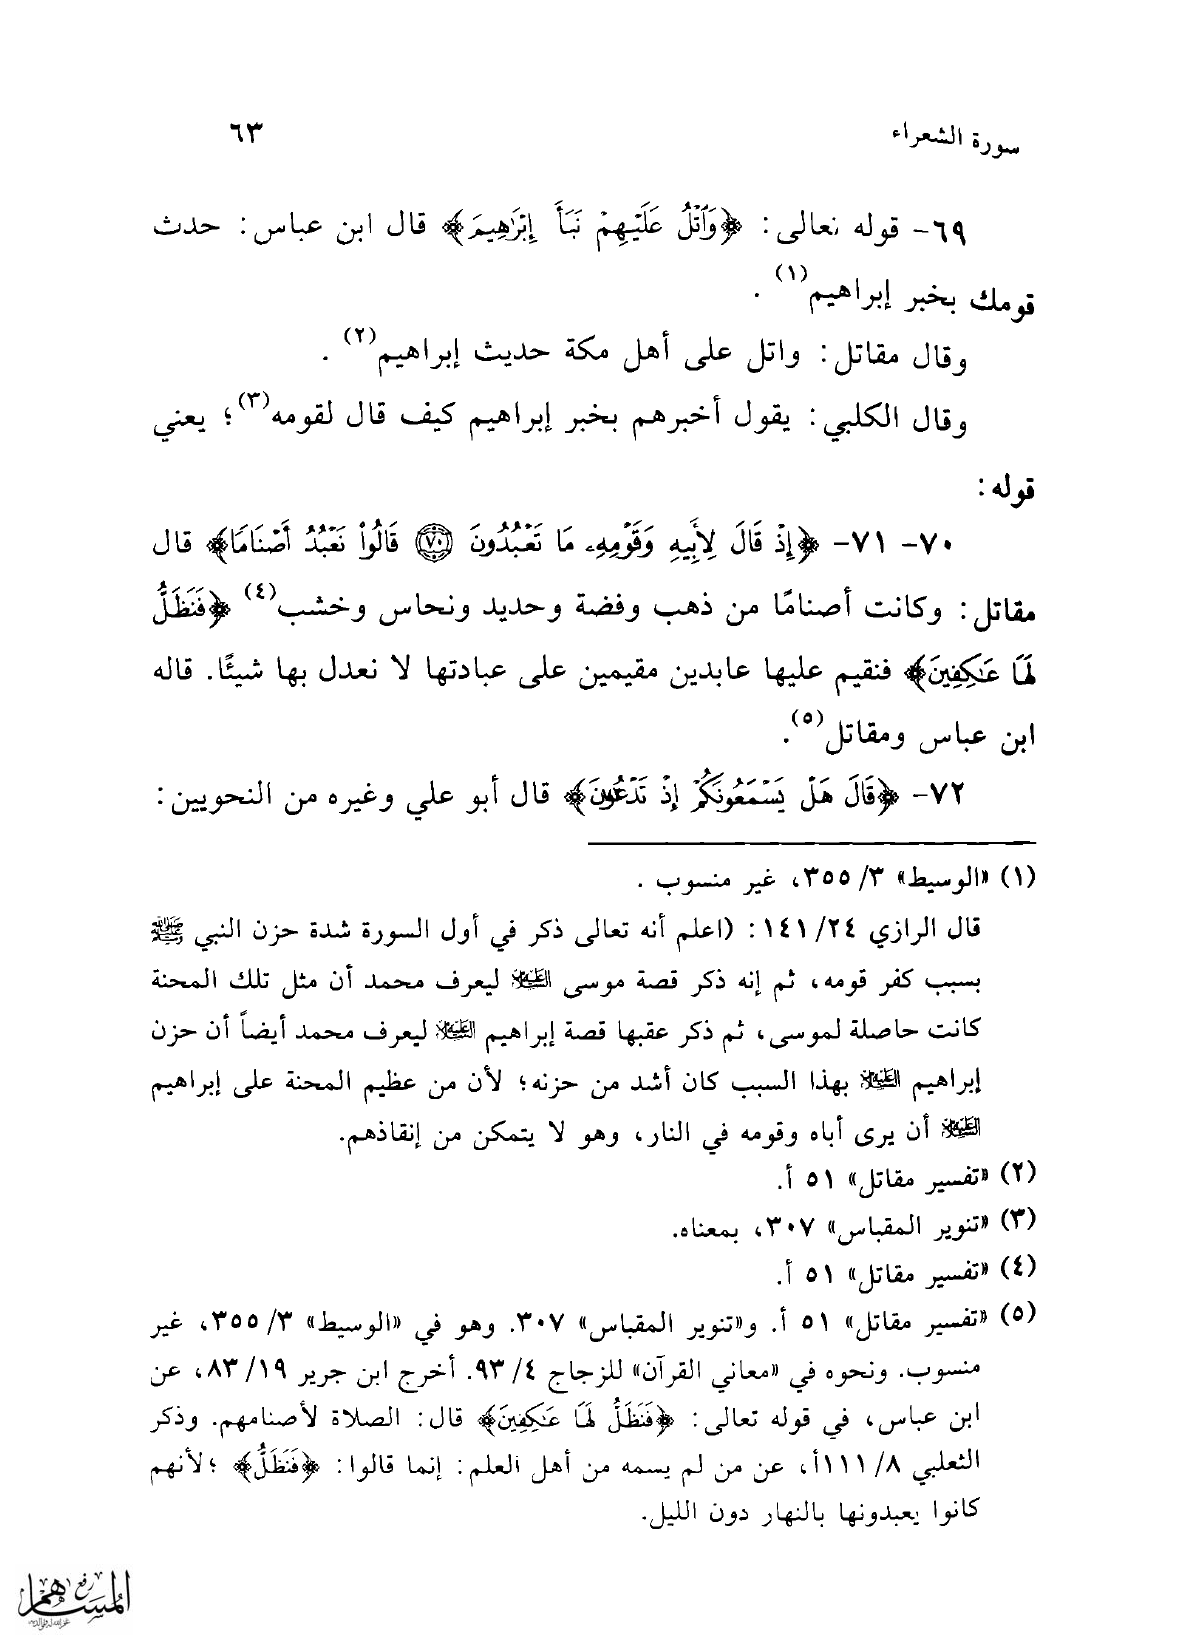 سورة الشعراء ٦٣
٦٩- قوله تعالى: ﴿وَٱتۡلُ عَلَيۡهِمۡ نَبَأَ إِبۡرَٰهِيمَ﴾ قال ابن عباس: حدث
قومك بخبر إبراهيم(١) .
وقال مقاتل: واتل على أهل مكة حديث إبراهيم(٢) .
وقال الكلبي: يقول أخبرهم بخبر إبراهيم كيف قال لقومه(٣)؛ يعني
قوله:
٧٠- ٧١- ﴿إِذۡ قَالَ لِأَبِيهِ وَقَوۡمِهِۦ مَا تَعۡبُدُونَ ٧٠ قَالُواْ نَعۡبُدُ أَصۡنَامٗا﴾ قال
مقاتل: وكانت أصنامًا من ذهب وفضة وحديد ونحاس وخشب(٤) ﴿فَنَظَلُّ
لَهَا عَٰكِفِينَ﴾ فنقيم عليها عابدين مقيمين على عبادتها لا نعدل بها شيئًا. قاله
ابن عباس ومقاتل(٥).
٧٢- ﴿قَالَ هَلۡ يَسۡمَعُونَكُمۡ إِذۡ تَدۡعُونَ﴾ قال أبو علي وغيره من النحويين:
(١) «الوسيط» ٣/ ٣٥٥، غير منسوب .
قال الرازي ٢٤/ ١٤١: (اعلم أنه تعالى ذكر في أول السورة شدة حزن النبي ﷺ
بسبب كفر قومه، ثم إنه ذكر قصة موسى عليه السلام ليعرف محمد أن مثل تلك المحنة
كانت حاصلة لموسى، ثم ذكر عقبها قصة إبراهيم عليه السلام ليعرف محمد أيضاً أن حزن
إبراهيم عليه السلام بهذا السبب كان أشد من حزنه؛ لأن من عظيم المحنة على إبراهيم
عليه السلام أن يرى أباه وقومه في النار، وهو لا يتمكن من إنقاذهم.
(٢) «تفسير مقاتل» ٥١ أ.
(٣) «تنوير المقباس» ٣٠٧، بمعناه.
(٤) «تفسير مقاتل» ٥١ أ.
(٥) «تفسير مقاتل» ٥١ أ. و«تنوير المقباس» ٣٠٧. وهو في «الوسيط» ٣/ ٣٥٥، غير
منسوب. ونحوه في «معاني القرآن» للزجاج ٤/ ٩٣. أخرج ابن جرير ١٩/ ٨٣، عن
ابن عباس، في قوله تعالى: ﴿فَنَظَلُّ لَهَا عَٰكِفِينَ﴾ قال: الصلاة لأصنامهم. وذكر
الثعلبي ٨/ ١١١أ، عن من لم يسمه من أهل العلم: إنما قالوا: ﴿فَنَظَلُّ﴾ ؛لأنهم
كانوا يعبدونها بالنهار دون الليل.
رفع
المساهم